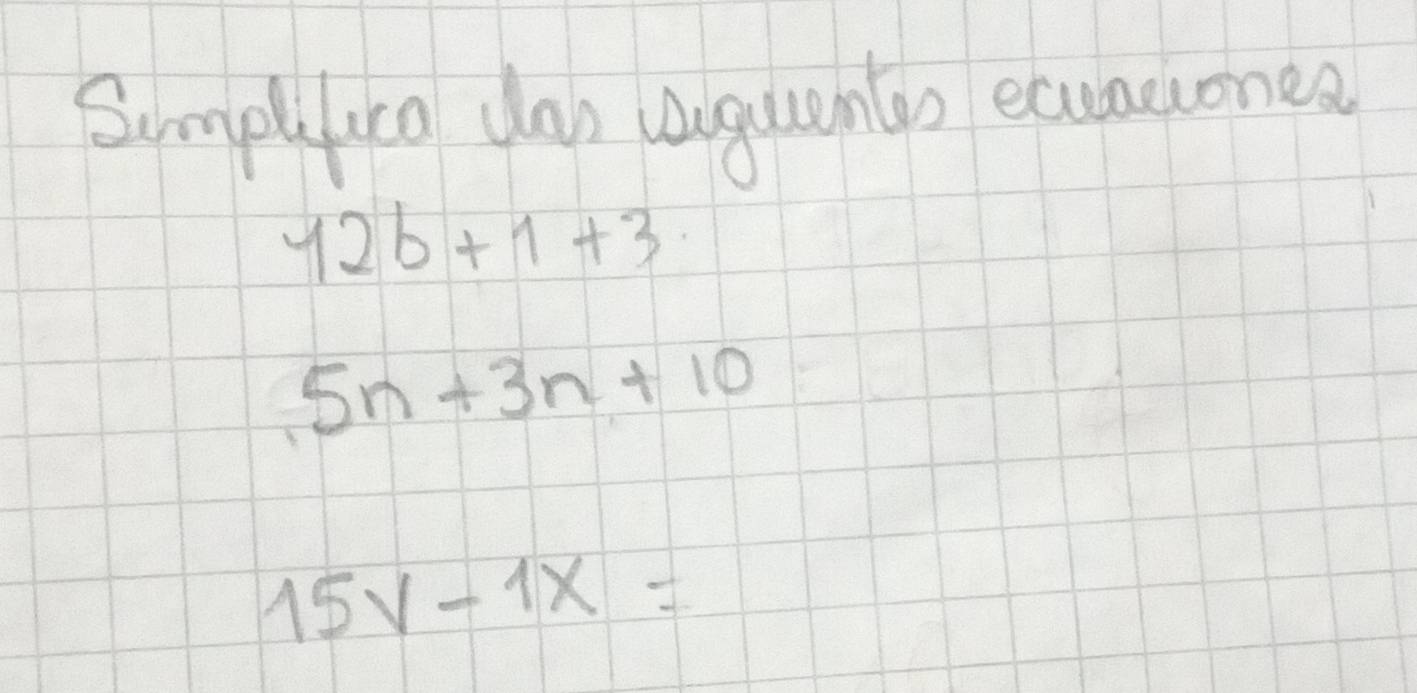 Simplifica las siguientes ecuaciones
12b + 1 + 3
5n + 3n + 10
15v - 1x =